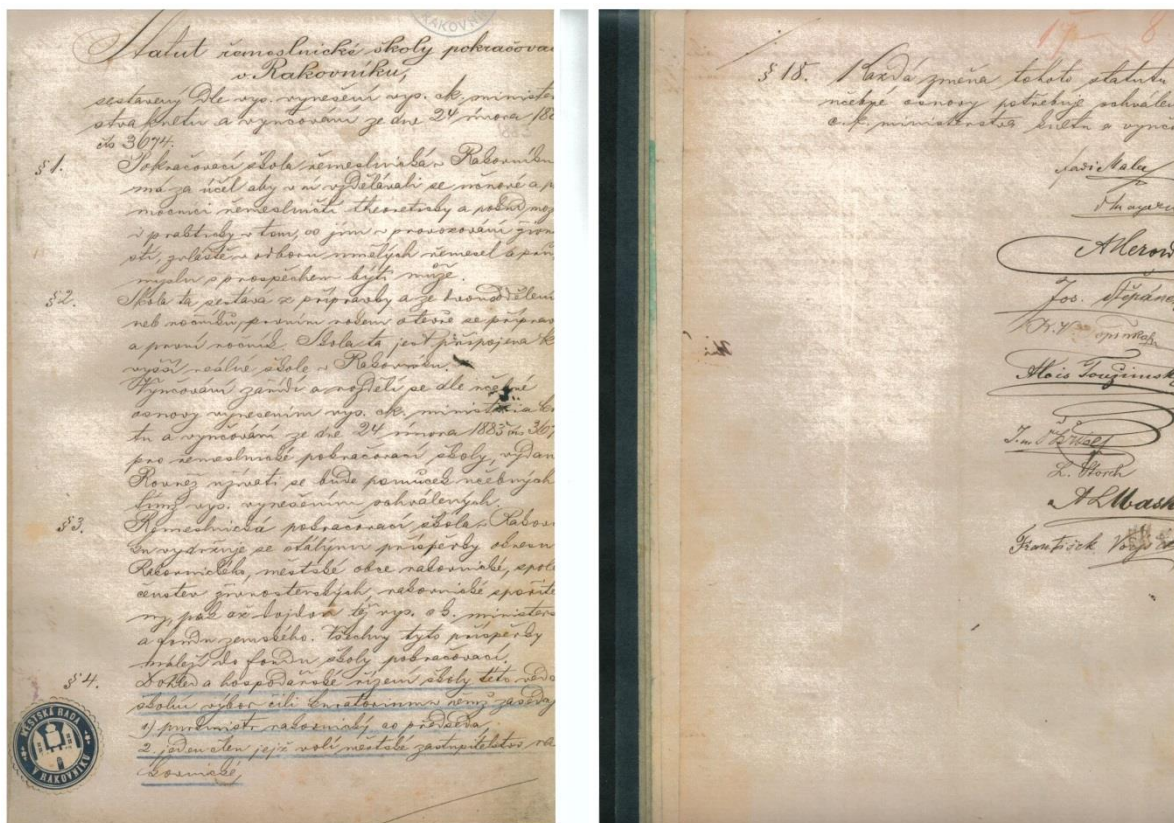 RAKOVNÍ
Statut řemeslnické školy pokračova
v Rakovníku,
sestavený dle vys. vynešení vys. ck. minister
stva kultu a vyučování ze dne 24 února 188
čís 3674.
§ 1. Pokračovací škola řemeslnická v Rakovníku
má za účel aby v ní vzdělávali se učňové a p
mocníci řemeslničtí theoreticky a pokud mož
i prakticky v tom, co jim v provozování živn
osti, zvláště v oboru umělých řemesel a prů
myslu s prospěchem býti může.
§ 2. Škola ta sestává z přípravky a ze dvou oddělení
neb ročníků, prvním rokem otevře se příprav
a první ročník. Škola ta jest připojena k
vyšší reálné škole v Rakovníku.
Vyučování zařídí a rozdělí se dle učebné
osnovy vynesením vys. ck. minist
tu a vyučování ze dne 24 února 1883 čís 367
pro řemeslnické pokračovací školy, vydan
Rovněž užívati se bude pomůcek učebných
týmž vys. vynešením schválených.
§ 3. Řemeslnická pokračovací škola v Rakov
ku vydržuje se stálými příspěvky okresu
Rakovnického, městské obce rakovnické, spole
čenstev živnostenských, rakovnické spořite
ny, pak až dojdou též vys. ck. ministers
a fondu zemského. Všechny tyto příspěvky
náležejí do fondu školy pokračovací.
§ 4. Dohled a hospodářské řízení školy této vede
školní výbor čili kuratorium v němž zasedaj
1) purkmistr rakovnický co předseda
2. jeden člen jejž volí městské zastupitelstvo ra
kovnické,
MĚSTSKÁ RADA
V RAKOVNÍKU
§ 18. Každá změna tohoto statutu
učebné osnovy potřebuje schválen
c.k. ministerstva kultu a vyučo
Jos. Štěpáne
Alois Toužimsk
L. Štorch
František